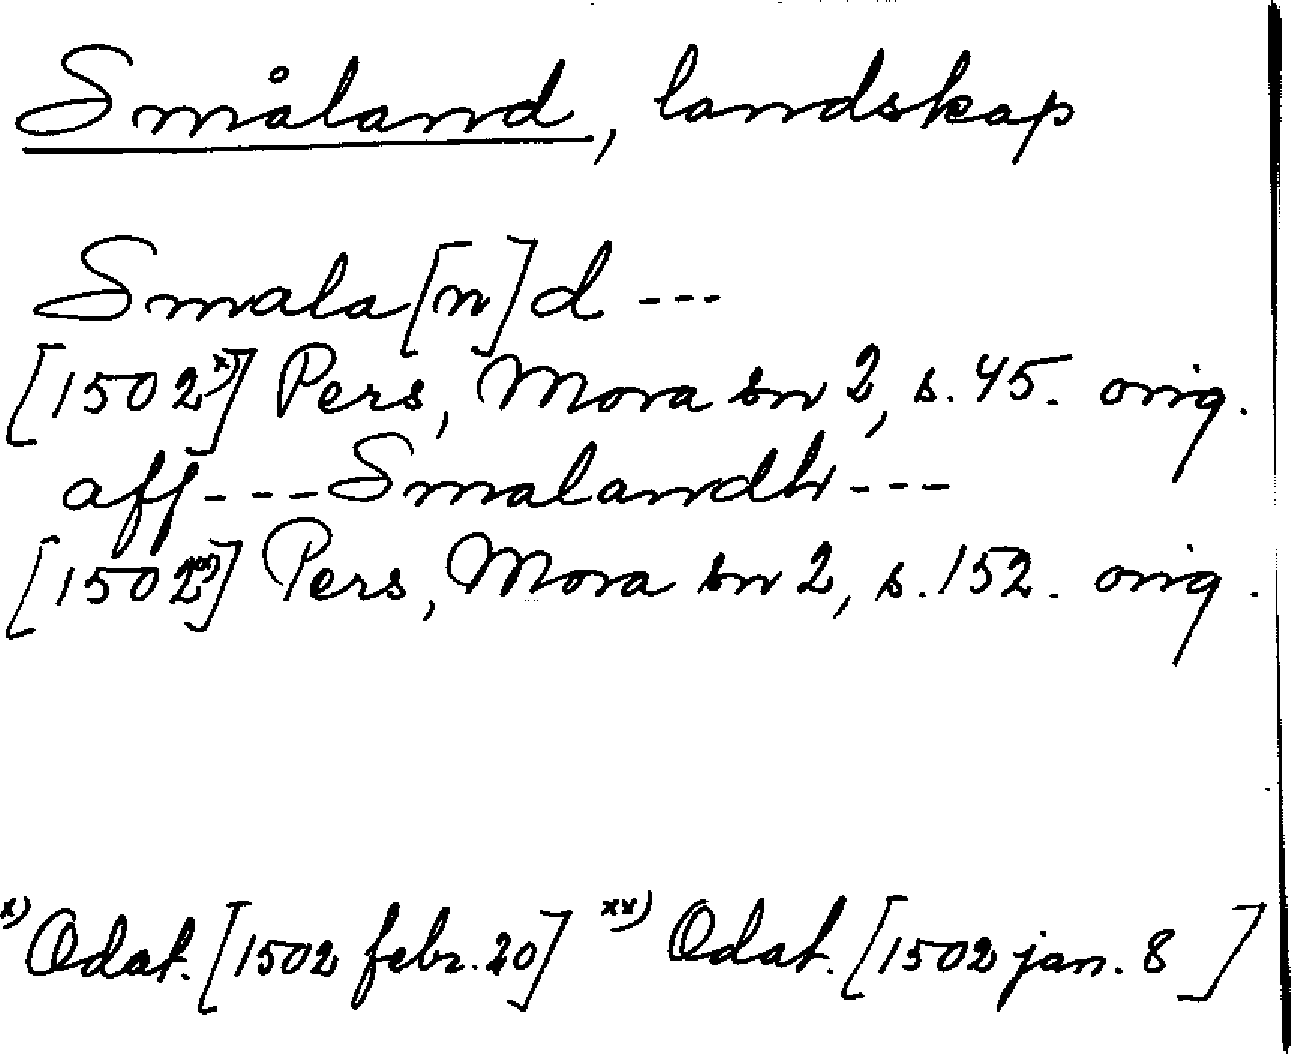 Småland, landskap
Smala[n]d ---
[1502x)] Pers, Mora sn 2, s. 45. orig.
aff---Smalandh---
[1502xx)] Pers, Mora sn 2, s. 152. orig.
x) Odat. [1502 febr. 20] xx) Odat. [1502 jan. 8]